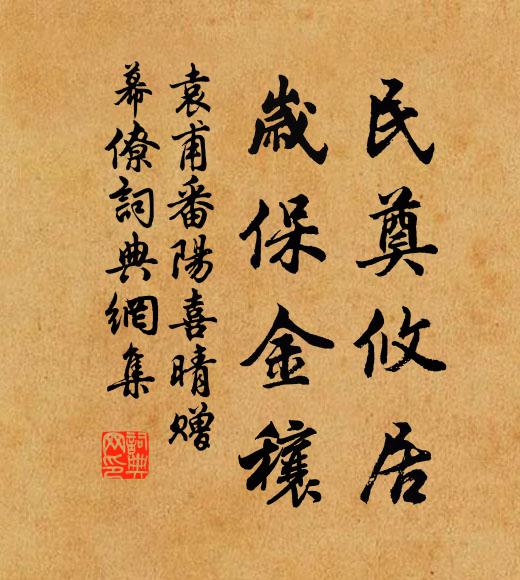 民奠攸居
歲保金穰
袁甫番陽喜晴贈
幕僚詞典網集
詞典网印